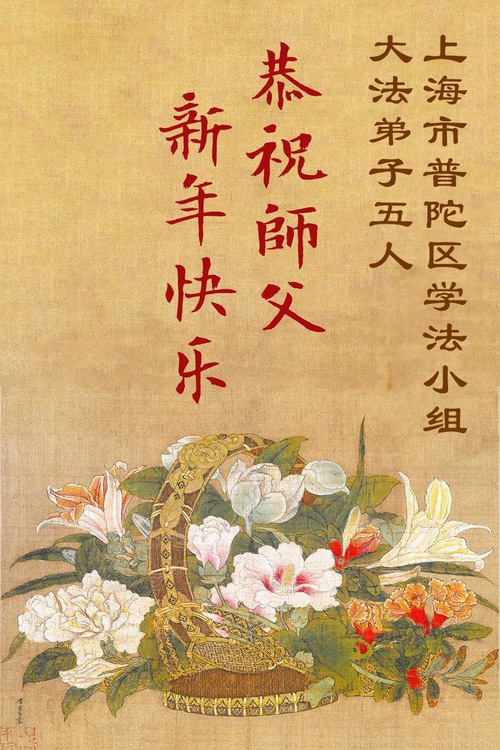 上海市普陀区学法小组
大法弟子五人
恭祝師父
新年快乐